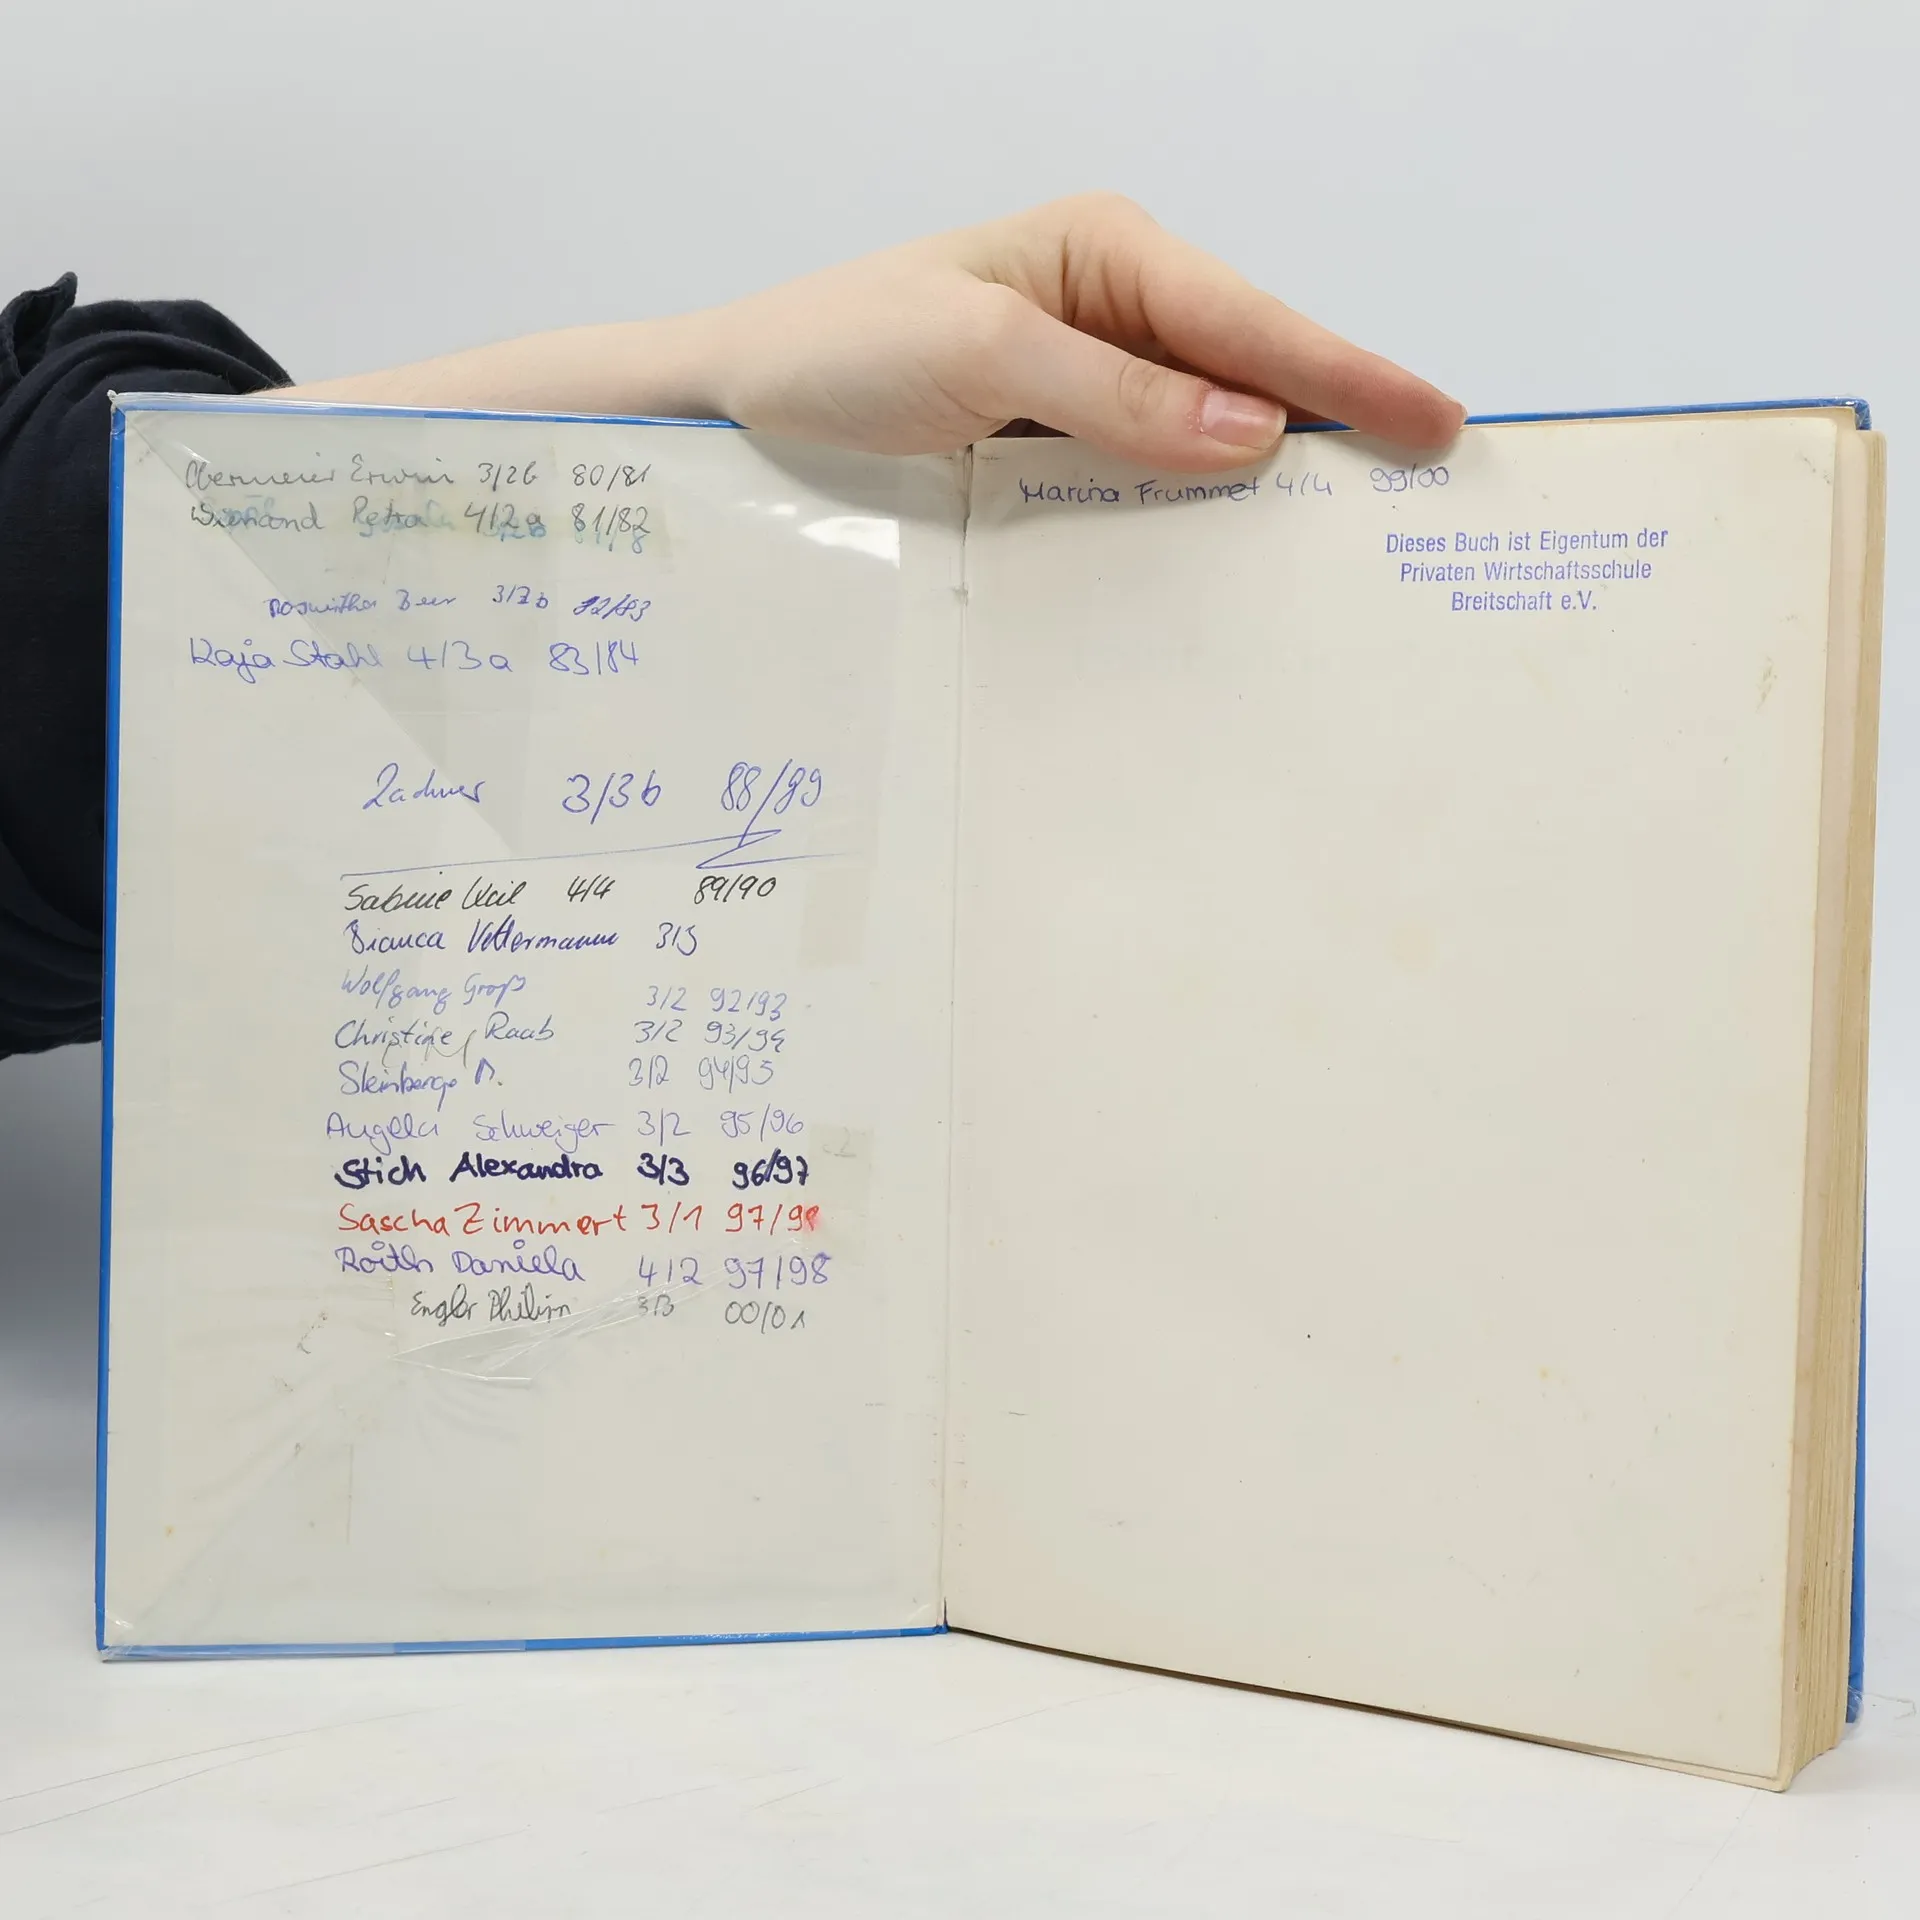 Obermeier Erwin 3/2b 80/81
Wienand Petra 4/2a 81/82
Roswitha Beer 3/2b 82/83
Kaja Stahl 4/3a 83/84
3/3b 88/99
Sabine Keil 4/4 89/90
Bianca Vettermann 3/3
Wolfgang Groß 3/2 92/93
Christine Raab 3/2 93/94
3/2 94/95
Angela Schweiger 3/2 95/96
Stich Alexandra 3/3 96/97
Sascha Zimmert 3/1 97/98
Roith Daniela 4/2 97/98
Engler Philipp 3/3 00/01
Marina Frummet 4/4 99/00
Dieses Buch ist Eigentum der
Privaten Wirtschaftsschule
Breitschaft e.V.